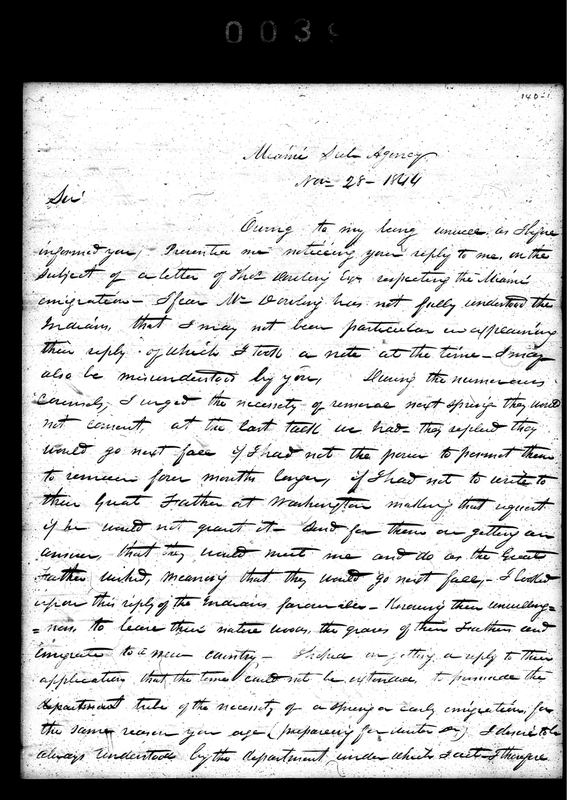 0039
140-1
Miami Sub Agency
Nov 28 - 1844
Sir
Owing to my being unwell as I before
informed you, Prevented me noticeing your reply to me, on the
Subject of a letter of Thos Dowling Esqr respecting the Miami
emigration - I fear Mr Dowling has not fully understood the
Indians, that I may not been particular in explaining
their reply of which I took a note at the time - I may
also be misunderstood by you, During the numerous
Councils, I urged the necessity of removal next spring they would
not consent, at the last talk we had - they replied they
would go next fall if I had not the power to permit them
to remain four months longer, if I had not to write to
their Great Father at Washington making that request
if he would not grant it - Send for them on getting an
answer, that they would meet me and do as the Great
Father wished, meaning that they would go next fall, - I looked
upon this reply of the Indians favourable - Knowing their unwilling=
=ness, to leave their native woods, the graves of their Fathers and
emigrate to a new country, - I hoped on getting a reply to their
application that the time could not be extended, to persuade the
tribe of the necessity of a spring or early emigration, for
the same reason you age (preparing for winter &c) I desire to be
always understood by the department under which I act - I therefore